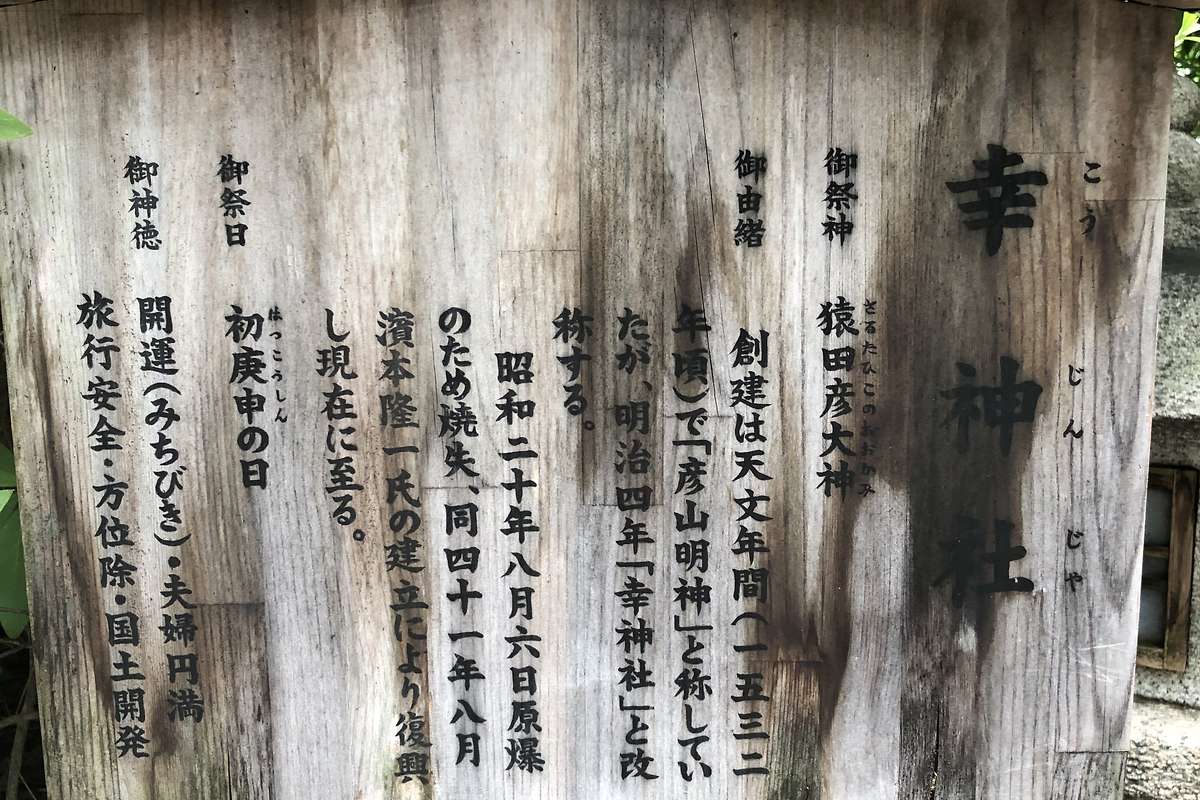 こうじんじゃ
幸神社
御祭神 猿田彦大神
さるたひこのおおかみ
御由緒 創建は天文年間(一五三二
年頃)で「彦山明神」と称してい
たが、明治四年「幸神社」と改
称する。
昭和二十年八月六日原爆
のため焼失、同四十一年八月
濱本隆一氏の建立により復興
し現在に至る。
はつこうしん
御祭日 初庚申の日
御神徳 開運(みちびき)・夫婦円満
旅行安全・方位除・国土開発